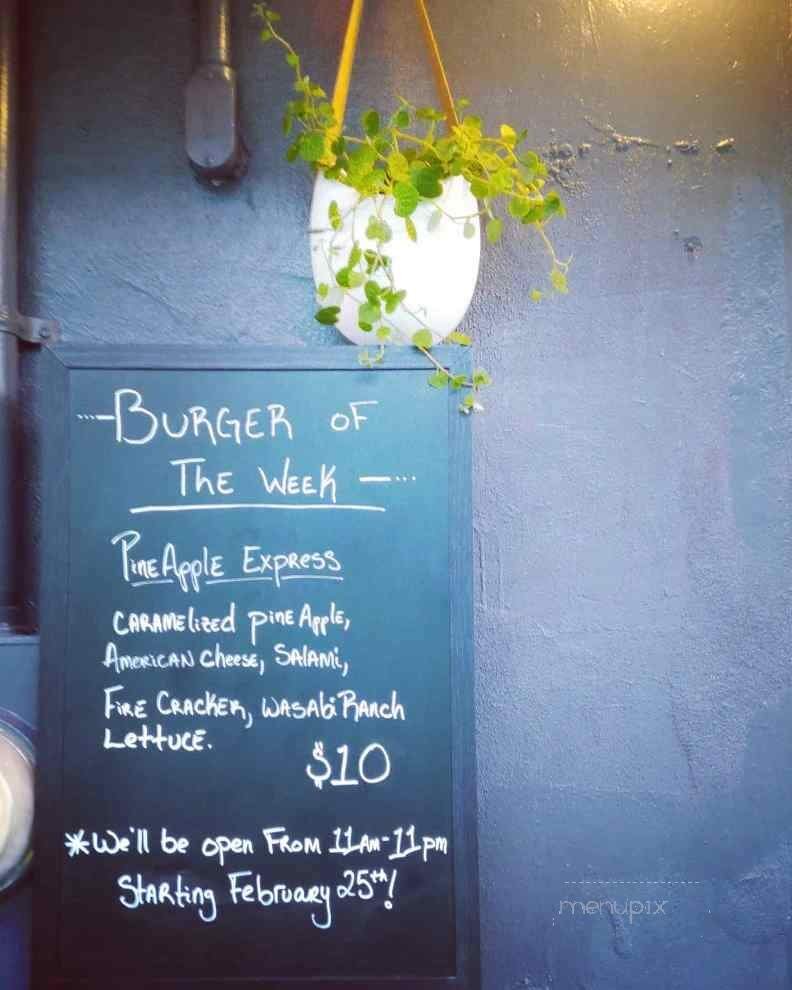 Burger of
The Week
PineApple Express
Caramelized pineApple,
American Cheese, Salami,
Fire Cracker, wasabi Ranch
Lettuce.
$10
*We'll be open From 11Am-11pm
Starting February 25th!
menupix